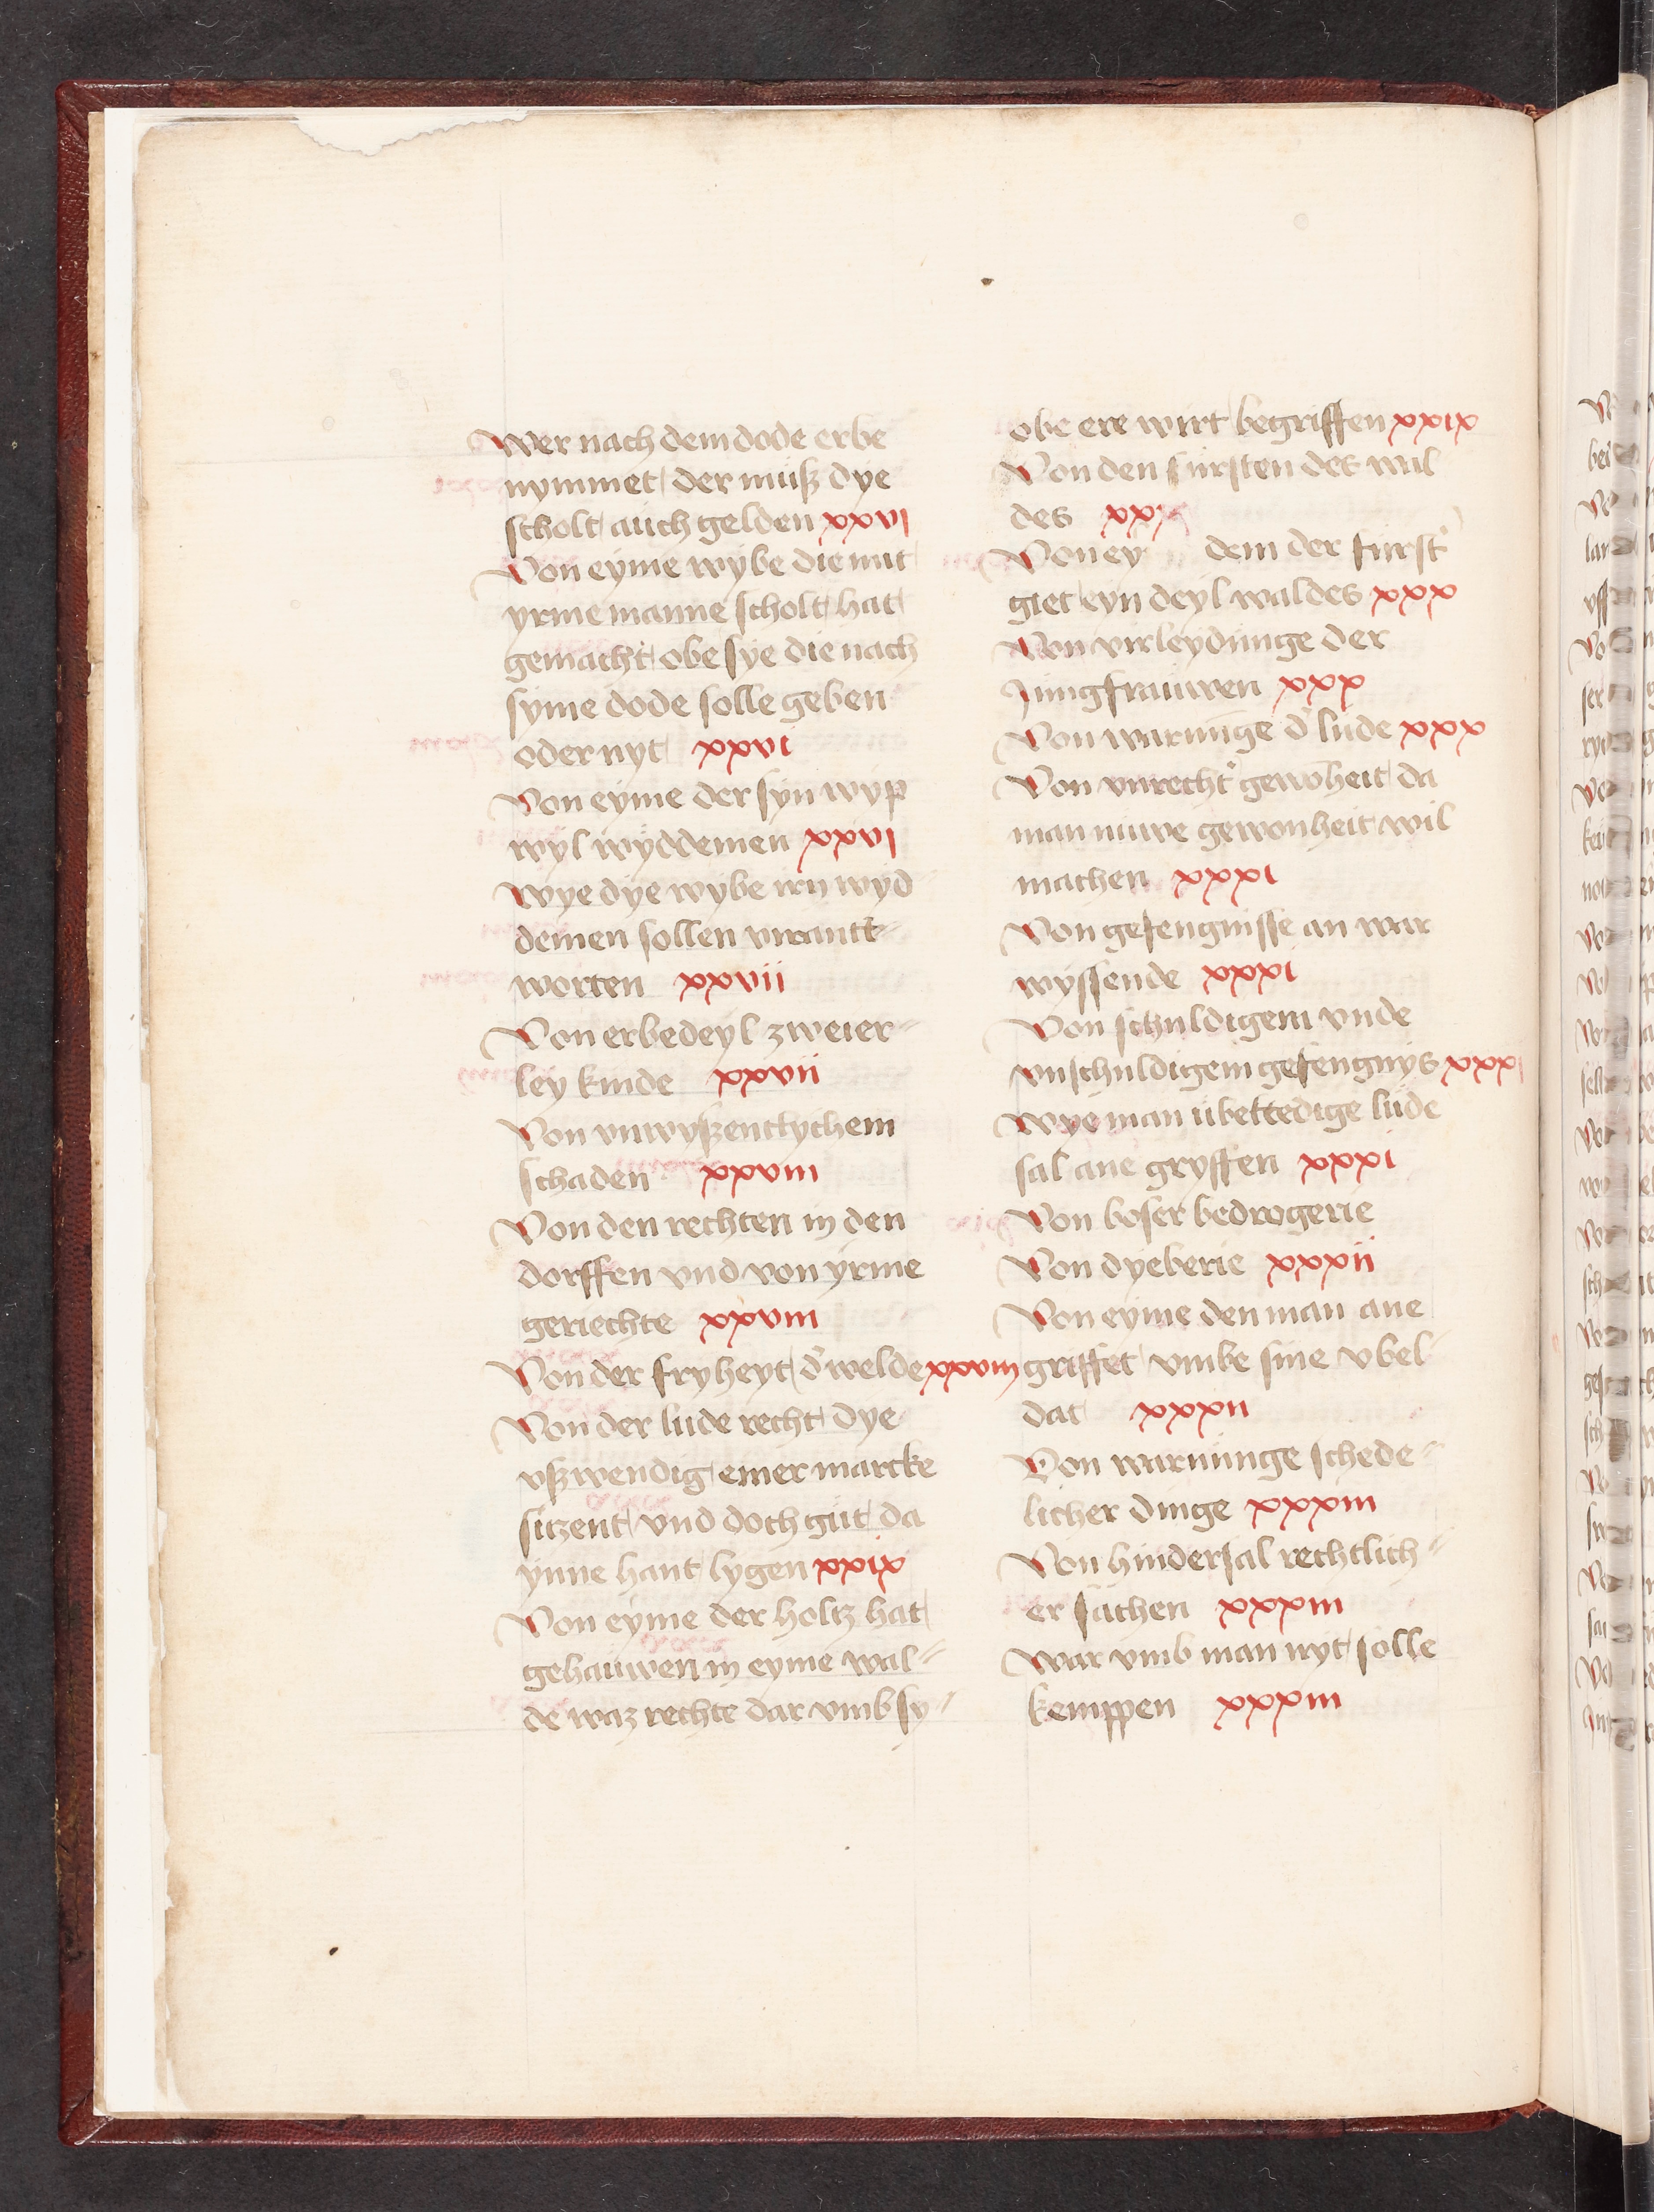 Wer nach dem dode erbe
nymmet der muß dye
scholt auch gelden xxvi
Von eyme wybe die mit
yrme manne scholt hat
gemacht obe sye die nach
syme dode solle geben
oder nyt xxvi
Von eyme der syn wyp
wyl wyddemen xxvi
Wye dye wybe irn wyd
demen sollen virantt=
worten xxvii
Von erbedeyl zweier=
ley kinde xxvii
Von vnwyßentlychem
schaden xxviii
Von den rechten in den
dorffen vnd von yrme
geriechte xxviii
Von der fryheyt d' welde xxviii
Von der lude recht dye
vßwendig einer marcke
sitzent vnd doch gut da
ynne hant lygen xxix
Von eyme der holtz hat
gehauwen in eyme wal=
de waz rechte dar vmb sy=
obe ere wirt begriffen xxix
Von den fursten des wal
des xxx
Von ey dem der furst'
giet eyn deyl waldes xxx
Von virleydunge der
Jungfrauwen xxx
Von warnūge d' lude xxx
Von vnrecht' gewōheit da
man nuwe gewonheit wil
machen xxxi
Von gefengnisse an war
wyssende xxxi
Von schuldigem vnde
vnschuldigem gefengnys xxxi
Wye man ubeltedige lude
sal ane gryffen xxxi
Von boser bedrogerie
Von dyeberie xxxii
Von eyme den man ane
griffet vmbe sine vbel
dat xxxii
Von warnunge schede=
licher dinge xxxiii
Von hindersal rechtlich=
er sachen xxxiii
War vmb man nyt solle
kemppen xxxiii